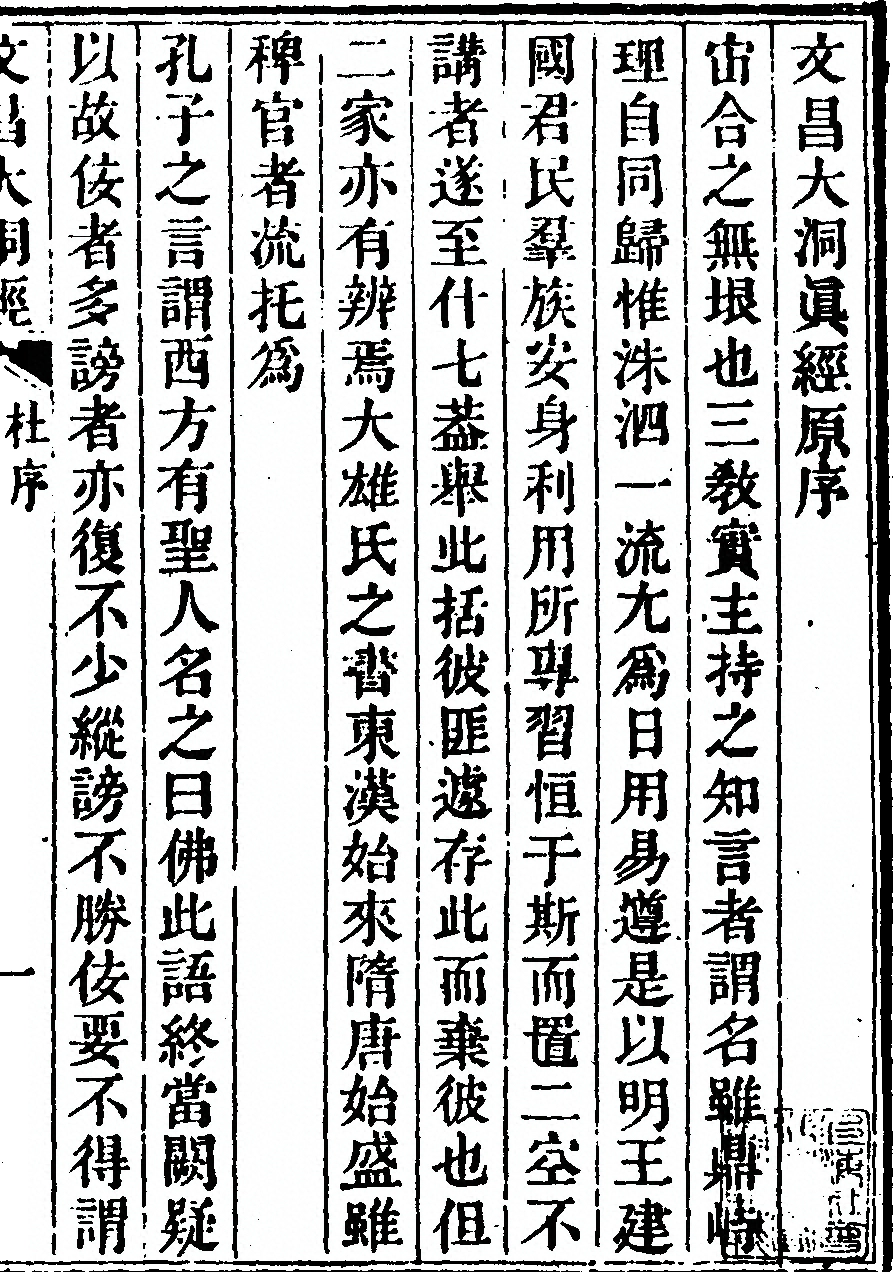 文昌大洞眞經原序
宙合之無垠也三敎實主持之知言者謂名雖鼎峙
理自同歸惟洙泗一流尤爲日用易遵是以明王建
國君民羣族安身利用所專習恒于斯而置二空不
講者遂至什七葢舉此括彼匪遽存此而棄彼也但
二家亦有辨焉大雄氏之書東漢始來隋唐始盛雖
稗官者流托爲
孔子之言謂西方有聖人名之曰佛此語終當闕疑
以故佞者多謗者亦復不少縱謗不勝佞要不得謂
文昌大洞經
杜序
一